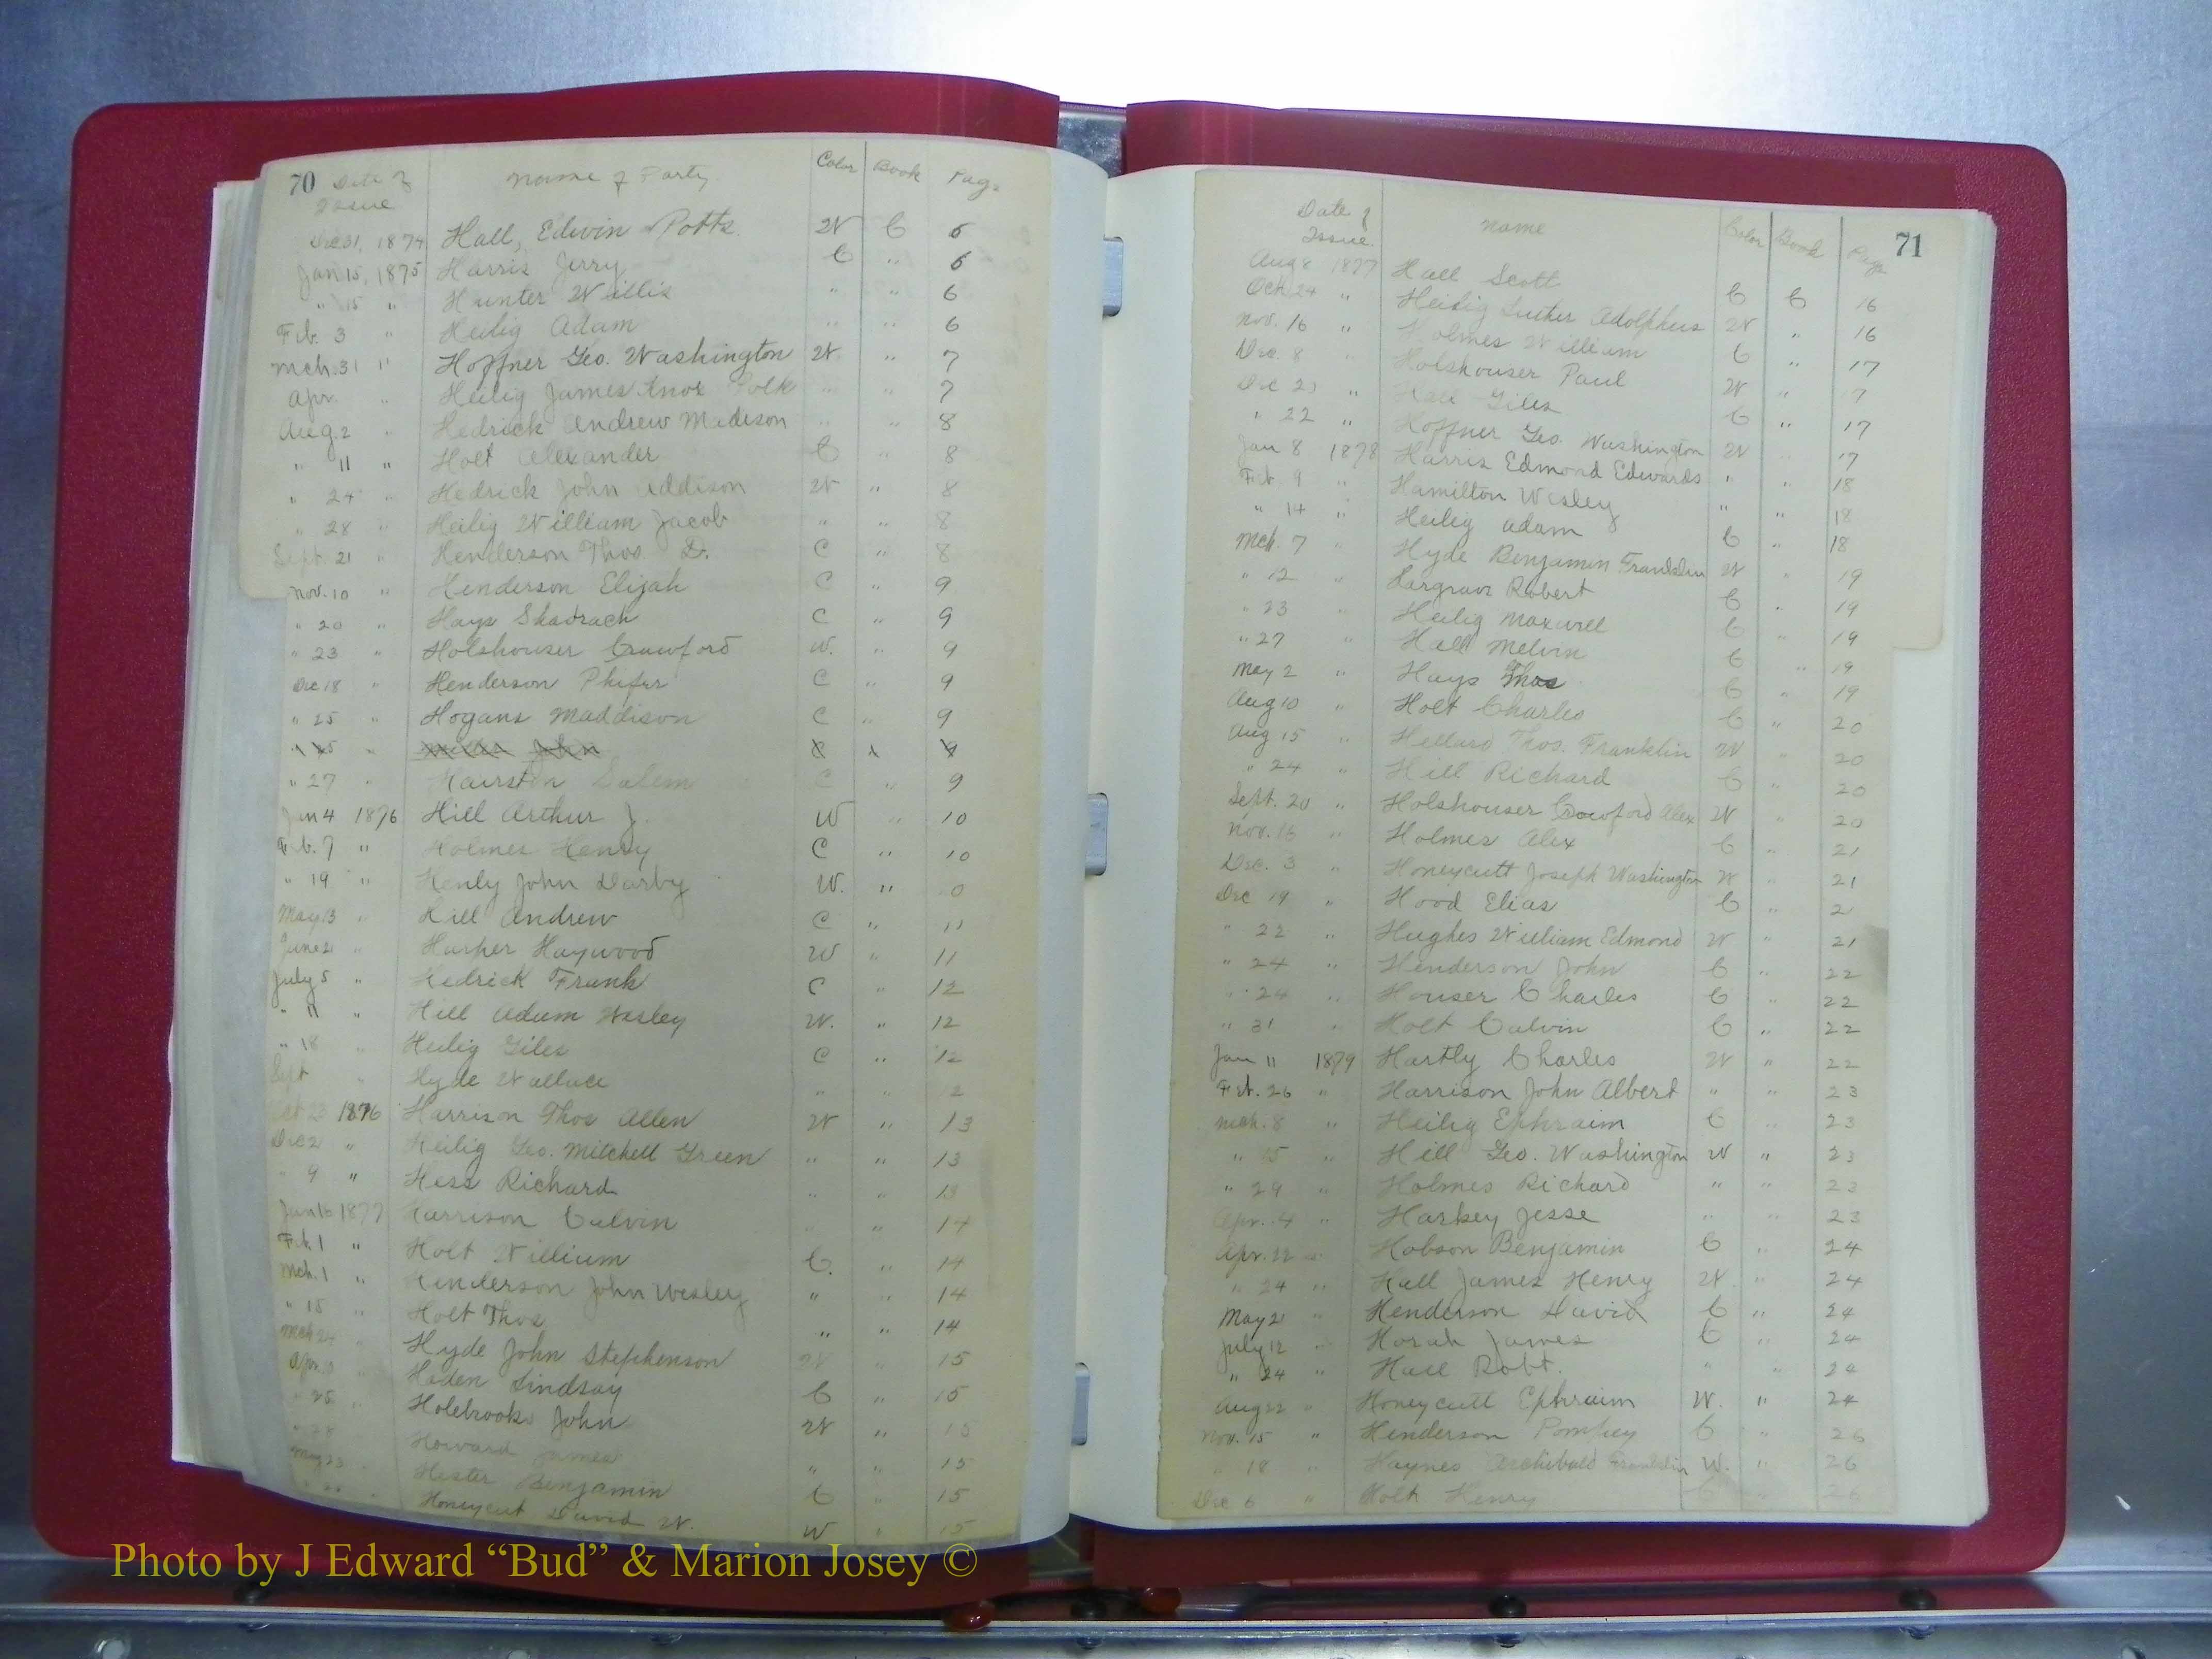 70 Date of Issue Name of Party Color Book Page
Dec 31, 1874 Hall, Edwin Potts W C 6
Jan 15, 1875 Harris Jerry C " 6
" 15 " Hunter Willis " " 6
Feb. 3 " Heilig Adam " " 6
Mch. 31 " Hoffner Geo. Washington W " 7
Apr. " Heilig James Knox Polk " " 7
Aug. 2 " Hedrick Andrew Madison " " 8
" 11 " Holt Alexander C " 8
" 24 " Hedrick John Addison W " 8
" 28 " Heilig William Jacob " " 8
Sept. 21 " Henderson Thos. D. C " 8
Nov. 10 " Henderson Elijah C " 9
" 20 " Hays Shadrach C " 9
" 23 " Holshouser Crawford W. " 9
Dec 18 " Henderson Phifer C " 9
" 25 " Hogans Maddison C " 9
" 27 " Hairston Salem C " 9
Jan 4 1876 Hill Arthur J. W " 10
Feb. 7 " Holmes Henry C " 10
" 19 " Henly John Darby W. " 0
May 13 " Hill Andrew C " 11
June 21 " Harper Haywood W " 11
July 5 " Hedrick Frank C " 12
" 11 " Hill Adam Wesley W. " 12
" 18 " Heilig Giles C " 12
Sept " Hyde Wallace " " 2
Oct 23 1876 Harrison Thos Allen W " 13
Dec 2 " Heilig Geo. Mitchell Green " " 13
" 9 " Hess Richard " " 13
Jan 16 1877 Harrison Calvin " " 14
Feb. 1 " Holt William C. " 14
Mch. 1 " Henderson John Wesley " " 14
" 15 " Holt Thos " " 14
Mch 24 " Hyde John Stephenson W " 15
Apr. " Haden Lindsay C " 15
" 25 " Holebrooks John W " 15
" 28 Howard James " " 15
May 23 " Hester Benjamin C " 15
" Honeycut David W. W " 15
Date of Issue Name Color Book Page 71
Aug 8 1877 Hall Scott C C 16
Oct. 24 " Heilig Luther Adolphus W " 16
Nov. 16 " Holmes William C " 17
Dec. 8 " Holshouser Paul W " 7
Dec 21 " Hall Giles C " 17
" 22 " Hoffner Geo. Washington W " 17
Jan 8 1878 Harris Edmond Edwards " " 18
Feb. 9 " Hamilton Wesley " " 18
" 14 " Heilig Adam C " 18
Mch. 7 " Hyde Benjamin Franklin W " 19
" 12 " Hargrave Robert C " 19
" 23 " Heilig Maxwell C " 19
" 27 " Hall Melvin C " 19
May 2 " Hays Thos C " 19
Aug 10 " Holt Charles C " 20
Aug 15 " Hellard Thos. Franklin W " 20
" 24 " Hill Richard C " 20
Sept. 20 " Holshouser Crawford Alex W " 20
Nov. 16 " Holmes Alex C " 21
Dec. 3 " Honeycutt Joseph Washington W " 21
Dec 19 " Hood Elias C " 21
" 22 " Hughes William Edmond W " 21
" 24 " Henderson John C " 22
" 24 " Houser Charles C " 22
" 31 " Holt Calvin C " 22
Jan 11 1879 Hartly Charles W " 22
Feb. 26 " Harrison John Albert " " 23
Mch. 8 " Heilig Ephraim C " 23
" 15 " Hill Geo. Washington W " 23
" 29 " Holmes Richard " " 23
Apr. 4 " Harkey Jesse " " 23
Apr. 22 " Hobson Benjamin C " 24
" 24 " Hall James Henry W " 24
May 21 " Henderson David C " 24
July 12 " Horah James C " 24
" 24 " Hall Robt. " " 24
Aug 22 " Honeycutt Ephraim W. " 24
Nov. 15 " Henderson Pompey C " 26
" 18 " Haynes Archibald Franklin W. " 26
Dec 6 " Holt Henry C " 26
Photo by J Edward “Bud” & Marion Josey ©